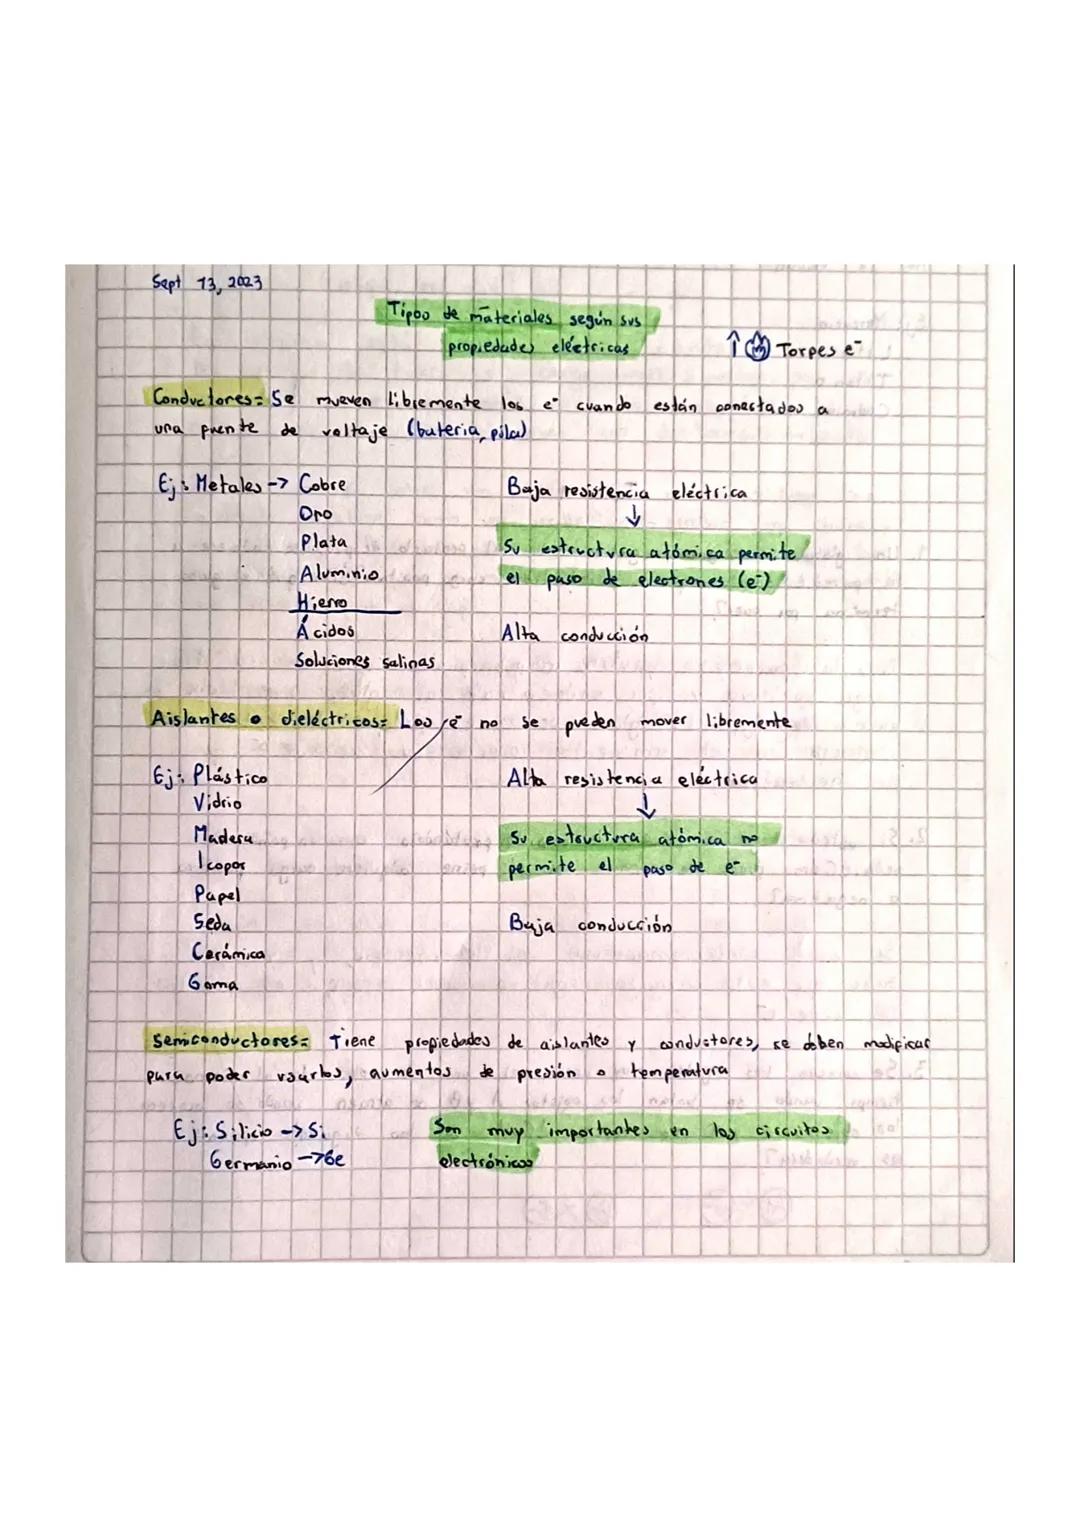 Sept 13, 2023
Tipos de materiales según sus
propiedades eléctricas
↑ Torpes e⁻
Conductores= Se mueven libremente los e⁻ cuando están conectados a
una fuente de voltaje (batería, pila)
Ej: Metales -> Cobre
Oro
Plata
Aluminio
Hierro
Ácidos
Soluciones salinas
Baja resistencia eléctrica
↓
Su estructura atómica permite
el paso de electrones (e⁻)
Alta conducción
Aislantes o dieléctricos= Los e⁻ no se pueden mover libremente
Ej: Plástico
Vidrio
Madera
Icopor
Papel
Seda
Cerámica
Goma
Alta resistencia eléctrica
↓
Su estructura atómica no
permite el paso de e⁻
Baja conducción
Semiconductores= Tiene propiedades de aislantes y conductores, se deben modificar
para poder usarlos, aumentos de presión o temperatura
Ej: Silicio -> Si
Germanio -> Ge
Son muy importantes en los circuitos
electrónicos